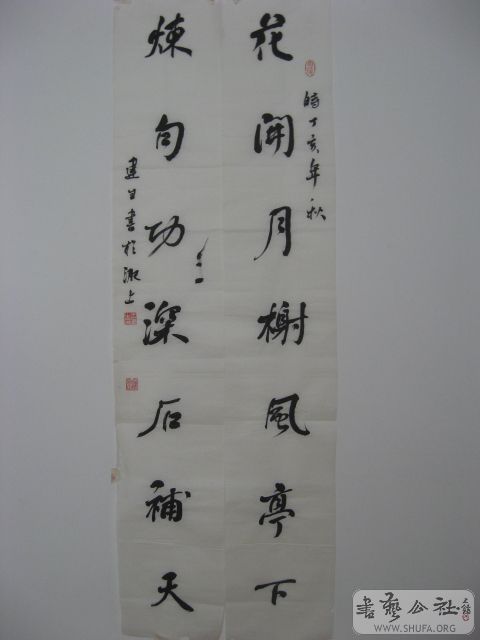 時丁亥年秋
花開月榭風亭下
煉句功深石補天
建生書於淑上
書藝公社
WWW.SHUFA.ORG